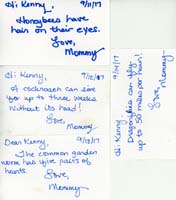 Hi Kenny, 9/11/17
Honeybees have
hair on their eyes.
Love,
Mommy
Hi Kenny, 9/12/17
A cockroach can live
for up to three weeks
without its head!
Love,
Mommy
Dear Kenny, 9/13/17
The common garden
worm has five pairs of
hearts.
Love,
Mommy
Hi Kenny, 9/14/17
Dragonflies can fly
up to 50 miles per hour!
Love,
Mommy